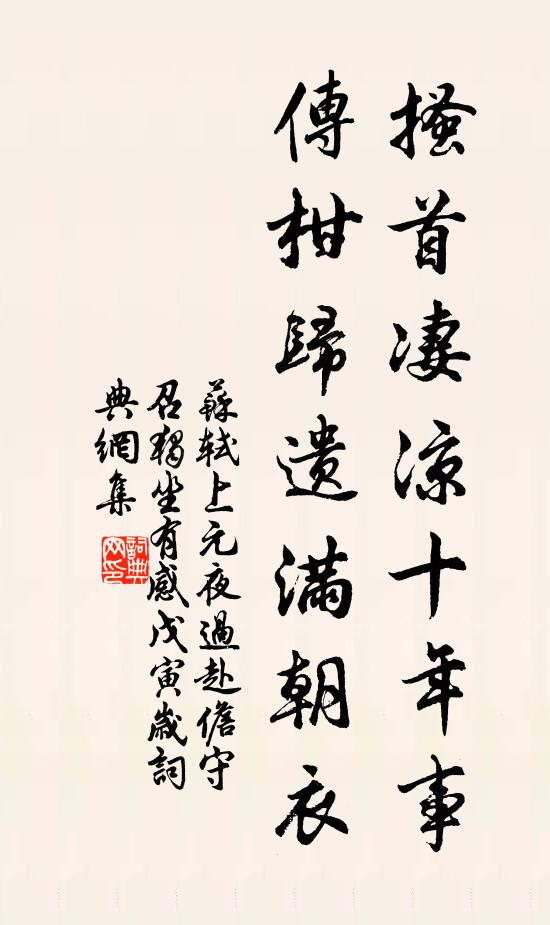 搔首凄涼十年事
傳柑歸遺滿朝衣
蘇軾上元夜過赴儋守
召獨坐有感戊寅歲詞
典網集
詞典
网印